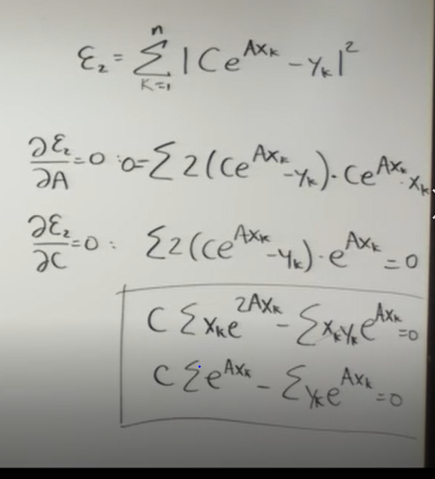 ε₂ = Σ_{k=1}^{n} |Ce^{Ax_k} - y_k|²
∂ε₂/∂A = 0 : 0 = Σ 2(Ce^{Ax_k} - y_k) · Ce^{Ax_k} · x_k
∂ε₂/∂C = 0 : Σ 2(Ce^{Ax_k} - y_k) · e^{Ax_k} = 0
C Σ x_k e^{2Ax_k} - Σ x_k y_k e^{Ax_k} = 0
C Σ e^{Ax_k} - Σ y_k e^{Ax_k} = 0